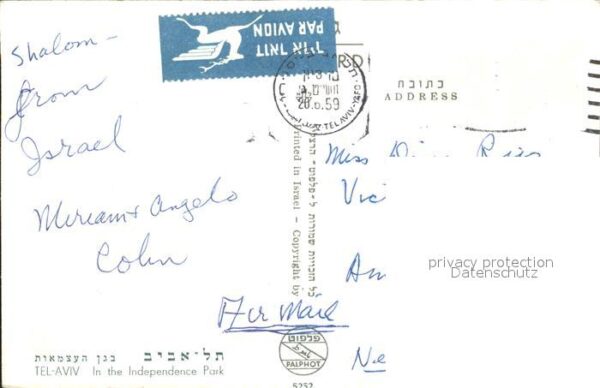 Shalom -
from
Israel
Miriam + Angelo
Cohn
דואר אויר
PAR AVION
TEL AVIV - YAFO
כתובת
ADDRESS
Miss
Vic
Am
Air Mail
Ne
privacy protection
Datenschutz
Printed in Israel - Copyright by
כל הזכויות שמורות ל"פלפוט"
פלפוט
PALPHOT
תל-אביב בגן העצמאות
TEL-AVIV In the Independence Park
5252